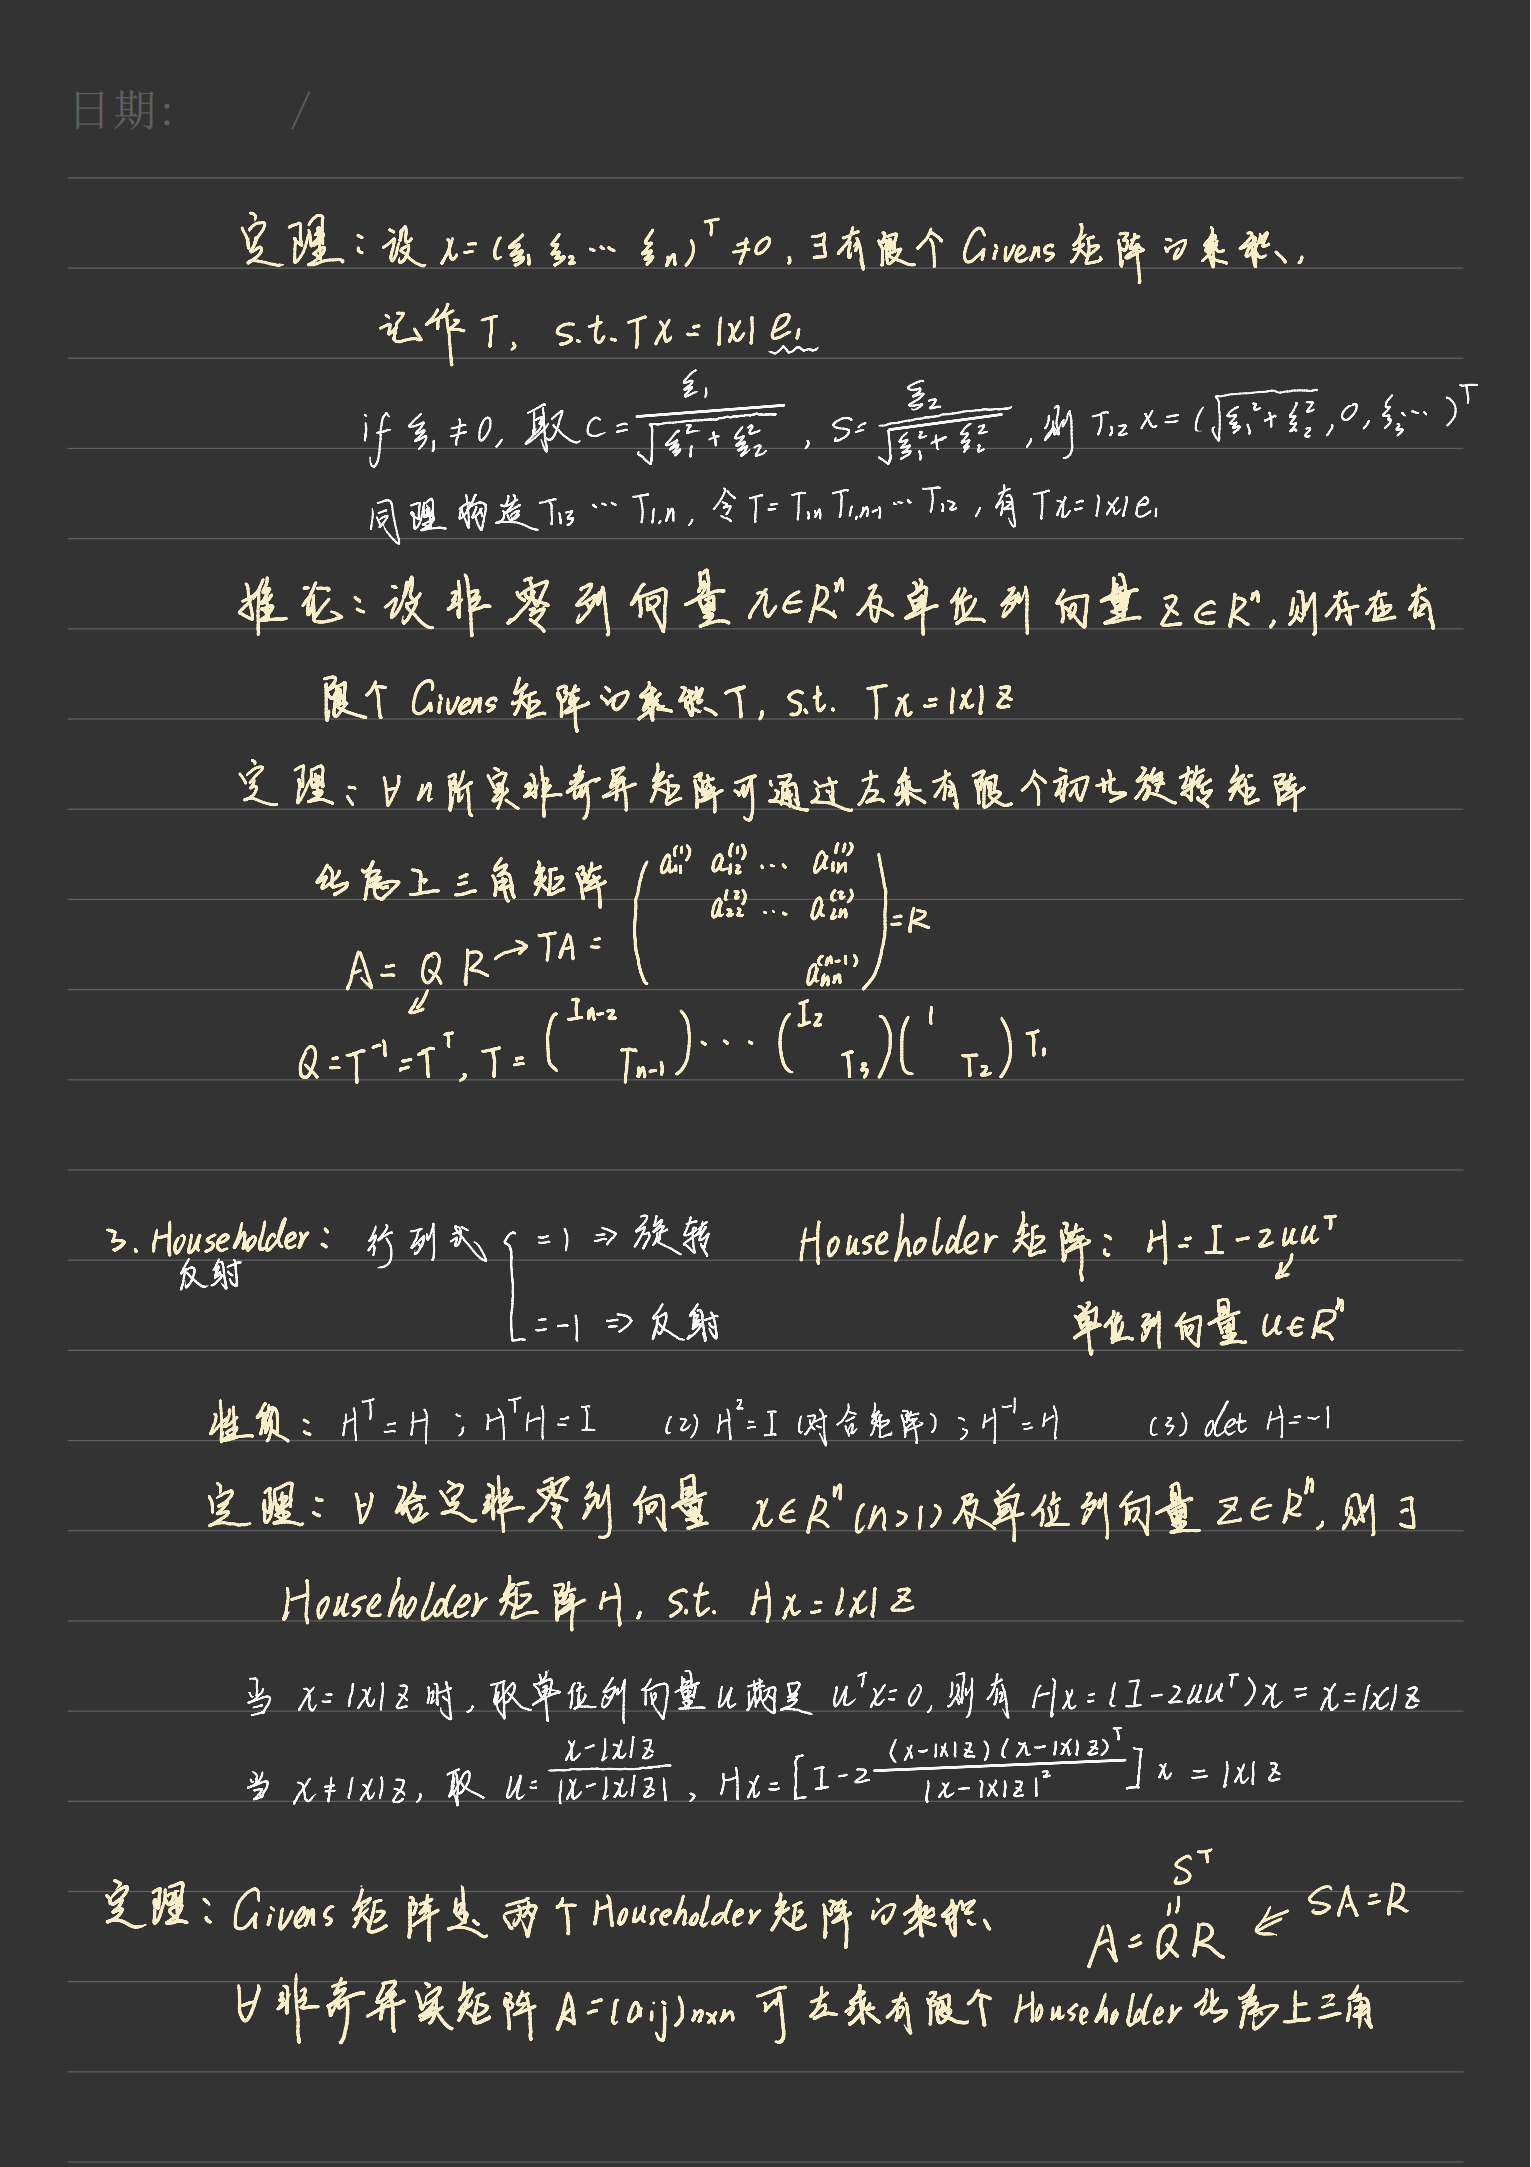 日期: /
定理：设 x=(ξ₁ ξ₂ ⋯ ξₙ)ᵀ≠0, ∃有限个 Givens 矩阵的乘积,
记作 T, s.t. Tx=|x|e₁
if ξ₁≠0, 取 c=ξ₁/√(ξ₁²+ξ₂²), s=ξ₂/√(ξ₁²+ξ₂²), 则 T₁₂x=(√(ξ₁²+ξ₂²), 0, ξ₃⋯)ᵀ
同理构造 T₁₃ ⋯ T₁,ₙ, 令 T=T₁ₙ T₁,ₙ₋₁ ⋯ T₁₂, 有 Tx=|x|e₁
推论：设非零列向量 x∈Rⁿ 及单位列向量 z∈Rⁿ, 则存在有
限个 Givens 矩阵的乘积 T, s.t. Tx=|x|z
定理：∀n阶实非奇异矩阵可通过左乘有限个初等旋转矩阵
化为上三角矩阵
A=QR → TA= ( a₁₁⁽¹⁾ a₁₂⁽¹⁾ ⋯ a₁ₙ⁽¹⁾
a₂₂⁽²⁾ ⋯ a₂ₙ⁽²⁾
aₙₙ⁽ⁿ⁻¹⁾ ) =R
Q=T⁻¹=Tᵀ, T= ( Iₙ₋₂ Tₙ₋₁ ) ⋯ ( I₂ T₃ )( 1 T₂ ) T₁
3. Householder： 行列式 { =1 ⇒ 旋转 Householder 矩阵： H=I-2uuᵀ
反射
=-1 ⇒ 反射 单位列向量 u∈Rⁿ
性质： Hᵀ=H ; HᵀH=I (2) H²=I (对合矩阵) ; H⁻¹=H (3) det H=-1
定理：∀给定非零列向量 x∈Rⁿ (n>1) 及单位列向量 z∈Rⁿ, 则∃
Householder 矩阵 H, s.t. Hx=|x|z
当 x=|x|z 时, 取单位列向量 u 满足 uᵀx=0, 则有 Hx=(I-2uuᵀ)x=x=|x|z
当 x≠|x|z, 取 u=(x-|x|z)/|x-|x|z|, Hx=[I-2 (x-|x|z)(x-|x|z)ᵀ/|x-|x|z|²] x = |x|z
Sᵀ
定理：Givens 矩阵是两个 Householder 矩阵的乘积、 A=QR ⇐ SA=R
∀非奇异实矩阵 A=(aij)ₙₓₙ 可左乘有限个 Householder 化为上三角